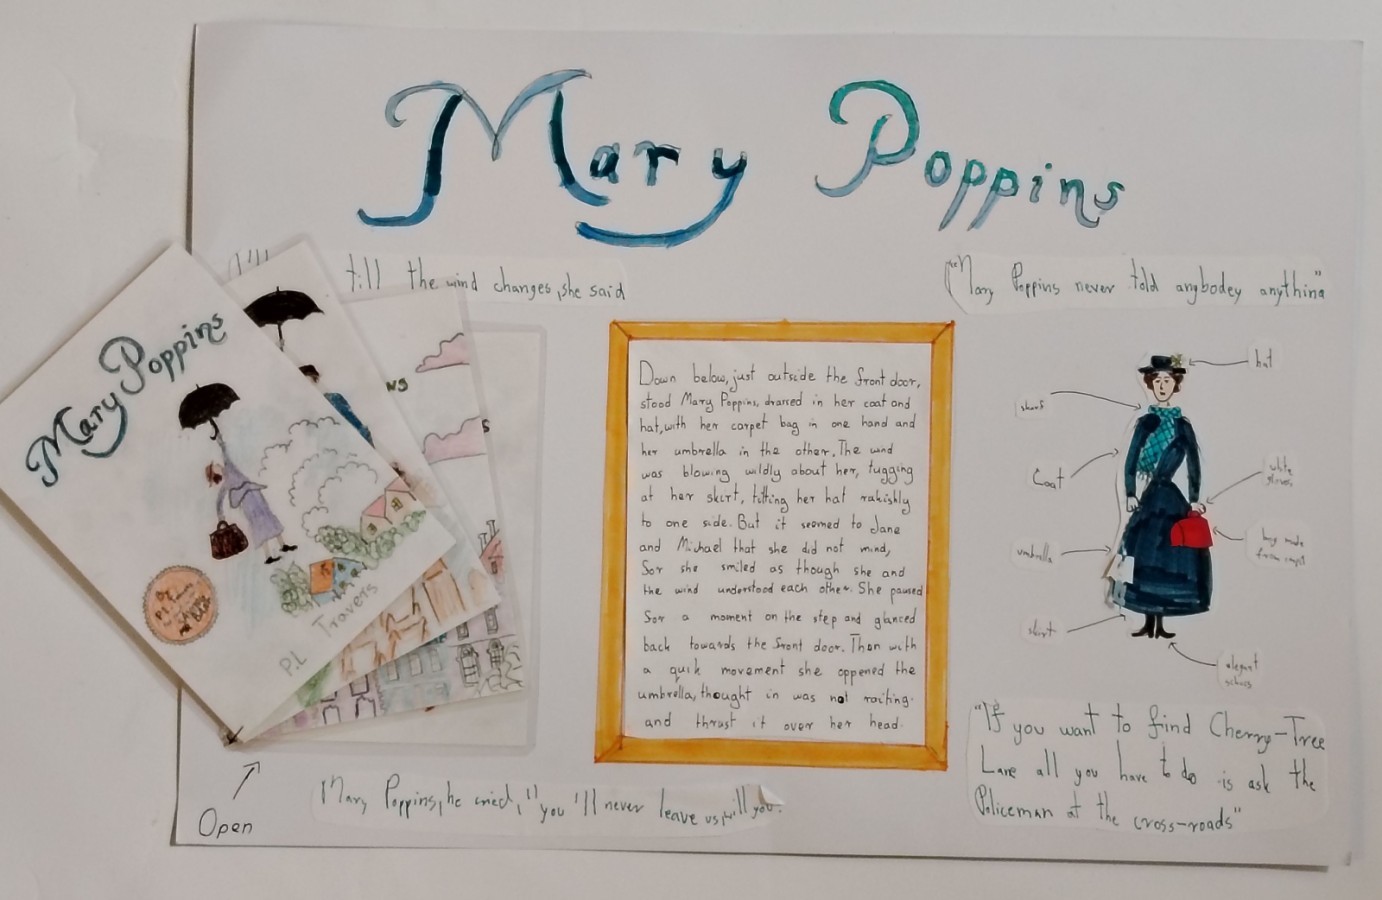 Mary Poppins
till the wind changes, she said
"Mary Poppins never told anybodey anything"
Mary Poppins
P.L Travers
Open
Down below, just outside the front door,
stood Mary Poppins, drassed in her coat and
hat, with her carpet bag in one hand and
her umbrella in the other. The wind
was blowing wildly about her, tugging
at her skirt, tilting her hat rakishly
to one side. But it seemed to Jane
and Michael that she did not mind,
for she smiled as though she and
the wind understood each other. She paused
for a moment on the step and glanced
back towards the front door. Then with
a quik movement she oppened the
umbrella, thought in was not raiting.
and thrust it over her head.
hat
Coat
white
gloves
umbrella
bag made
skirt
elegant
Mary Poppins, he cried, "you 'll never leave us, will you.
"If you want to find Cherry-Tree
Lane all you have to do is ask the
Policeman at the cross-roads"